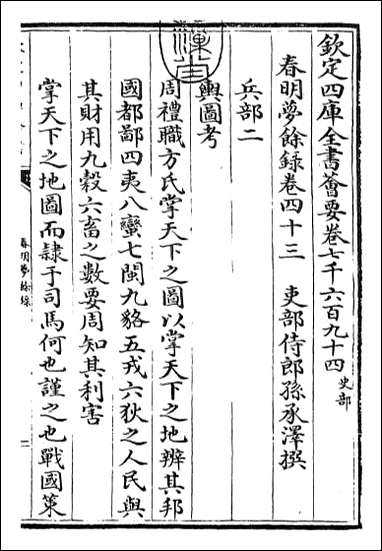 欽定四庫全書薈要卷七千六百九十四 史部
春明夢餘録卷四十三 吏部侍郎孫承澤撰
兵部二
輿圖考
周禮職方氏掌天下之圖以掌天下之地辨其邦
國都鄙四夷八蠻七閩九貉五戎六狄之人民與
其財用九榖六畜之數要周知其利害
掌天下之地圖而隷于司馬何也謹之也戰國策
春明夢餘録